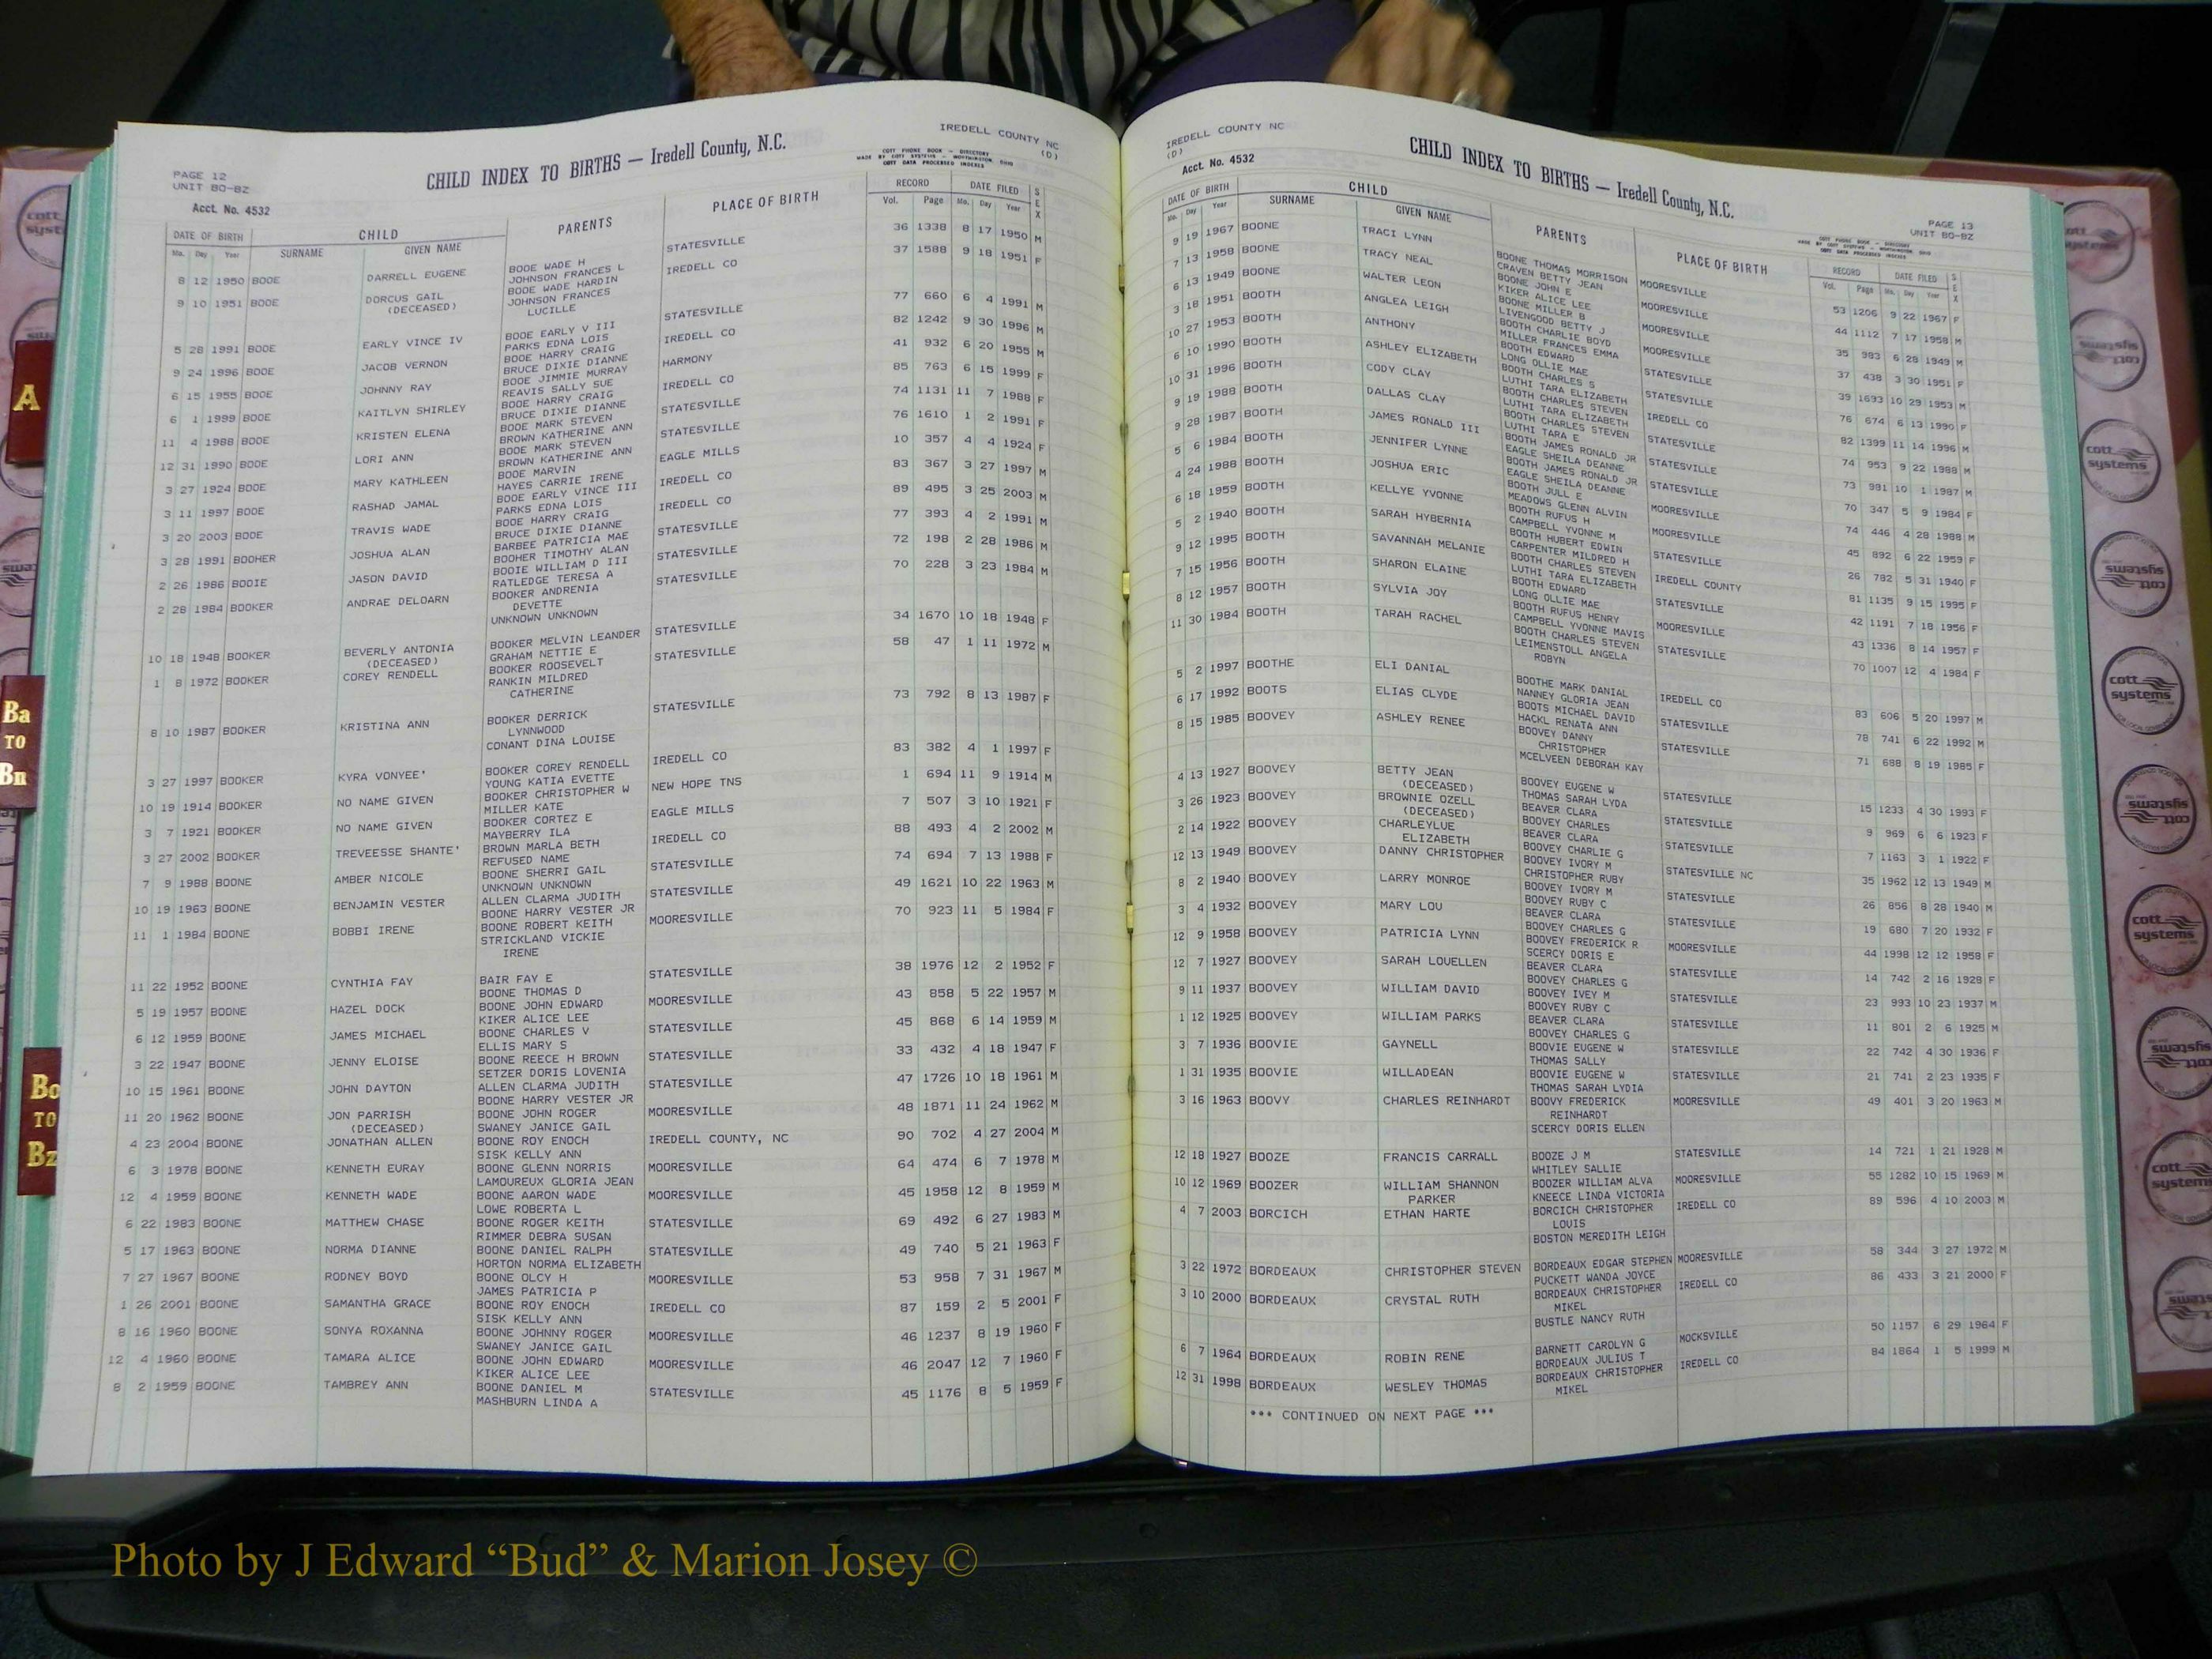 IREDELL COUNTY NC
(D)
CHILD INDEX TO BIRTHS — Iredell County, N.C.
COTT PHONE BOOK - DIRECTORY
MADE BY COTT SYSTEMS - WORTHINGTON, OHIO
COTT DATA PROCESSED INDEXES
PAGE 12
UNIT BO-BZ
Acct. No. 4532
DATE OF BIRTH CHILD PARENTS PLACE OF BIRTH RECORD DATE FILED SEX
Mo. Day Year SURNAME GIVEN NAME Vol. Page Mo. Day Year
8 12 1950 BOOE DARRELL EUGENE BOOE WADE H STATESVILLE 36 1338 8 17 1950 M
JOHNSON FRANCES L
9 10 1951 BOOE DORCUS GAIL BOOE WADE HARDIN IREDELL CO 37 1588 9 18 1951 F
(DECEASED) JOHNSON FRANCES
LUCILLE
5 28 1991 BOOE EARLY VINCE IV BOOE EARLY V III STATESVILLE 77 660 6 4 1991 M
PARKS EDNA LOIS
9 24 1996 BOOE JACOB VERNON BOOE HARRY CRAIG IREDELL CO 82 1242 9 30 1996 M
BRUCE DIXIE DIANNE
6 15 1955 BOOE JOHNNY RAY BOOE JIMMIE MURRAY HARMONY 41 932 6 20 1955 M
REAVIS SALLY SUE
6 1 1999 BOOE KAITLYN SHIRLEY BOOE HARRY CRAIG IREDELL CO 85 763 6 15 1999 F
BRUCE DIXIE DIANNE
11 4 1988 BOOE KRISTEN ELENA BOOE MARK STEVEN STATESVILLE 74 1131 11 7 1988 F
BROWN KATHERINE ANN
12 31 1990 BOOE LORI ANN BOOE MARK STEVEN STATESVILLE 76 1610 1 2 1991 F
BROWN KATHERINE ANN
3 27 1924 BOOE MARY KATHLEEN BOOE MARVIN EAGLE MILLS 10 357 4 4 1924 F
HAYES CARRIE IRENE
3 11 1997 BOOE RASHAD JAMAL BOOE EARLY VINCE III IREDELL CO 83 367 3 27 1997 M
PARKS EDNA LOIS
3 20 2003 BOOE TRAVIS WADE BOOE HARRY CRAIG IREDELL CO 89 495 3 25 2003 M
BRUCE DIXIE DIANNE
3 28 1991 BOOHER JOSHUA ALAN BARBEE PATRICIA MAE STATESVILLE 77 393 4 2 1991 M
BOOHER TIMOTHY ALAN
2 26 1986 BOOIE JASON DAVID BOOIE WILLIAM D III STATESVILLE 72 198 2 28 1986 M
RATLEDGE TERESA A
2 28 1984 BOOKER ANDRAE DELOARN BOOKER ANDRENIA STATESVILLE 70 228 3 23 1984 M
DEVETTE
UNKNOWN UNKNOWN
10 18 1948 BOOKER BEVERLY ANTONIA BOOKER MELVIN LEANDER STATESVILLE 34 1670 10 18 1948 F
(DECEASED) GRAHAM NETTIE E
1 8 1972 BOOKER COREY RENDELL BOOKER ROOSEVELT STATESVILLE 58 47 1 11 1972 M
RANKIN MILDRED
CATHERINE
8 10 1987 BOOKER KRISTINA ANN BOOKER DERRICK STATESVILLE 73 792 8 13 1987 F
LYNNWOOD
CONANT DINA LOUISE
3 27 1997 BOOKER KYRA VONYEE' BOOKER COREY RENDELL IREDELL CO 83 382 4 1 1997 F
YOUNG KATIA EVETTE
10 19 1914 BOOKER NO NAME GIVEN BOOKER CHRISTOPHER W NEW HOPE TNS 1 694 11 9 1914 M
MILLER KATE
3 7 1921 BOOKER NO NAME GIVEN BOOKER CORTEZ E EAGLE MILLS 7 507 3 10 1921 F
MAYBERRY ILA
3 27 2002 BOOKER TREVEESSE SHANTE' BROWN MARLA BETH IREDELL CO 88 493 4 2 2002 M
REFUSED NAME
7 9 1988 BOONE AMBER NICOLE BOONE SHERRI GAIL STATESVILLE 74 694 7 13 1988 F
UNKNOWN UNKNOWN
10 19 1963 BOONE BENJAMIN VESTER ALLEN CLARMA JUDITH STATESVILLE 49 1621 10 22 1963 M
BOONE HARRY VESTER JR
11 1 1984 BOONE BOBBI IRENE BOONE ROBERT KEITH MOORESVILLE 70 923 11 5 1984 F
STRICKLAND VICKIE
IRENE
11 22 1952 BOONE CYNTHIA FAY BAIR FAY E STATESVILLE 38 1976 12 2 1952 F
BOONE THOMAS D
5 19 1957 BOONE HAZEL DOCK BOONE JOHN EDWARD MOORESVILLE 43 858 5 22 1957 M
KIKER ALICE LEE
6 12 1959 BOONE JAMES MICHAEL BOONE CHARLES V STATESVILLE 45 868 6 14 1959 M
ELLIS MARY S
3 22 1947 BOONE JENNY ELOISE BOONE REECE H BROWN STATESVILLE 33 432 4 18 1947 F
SETZER DORIS LOVENIA
10 15 1961 BOONE JOHN DAYTON ALLEN CLARMA JUDITH STATESVILLE 47 1726 10 18 1961 M
BOONE HARRY VESTER JR
11 20 1962 BOONE JON PARRISH BOONE JOHN ROGER MOORESVILLE 48 1871 11 24 1962 M
(DECEASED) SWANEY JANICE GAIL
4 23 2004 BOONE JONATHAN ALLEN BOONE ROY ENOCH IREDELL COUNTY, NC 90 702 4 27 2004 M
SISK KELLY ANN
6 3 1978 BOONE KENNETH EURAY BOONE GLENN NORRIS MOORESVILLE 64 474 6 7 1978 M
LAMOUREUX GLORIA JEAN
12 4 1959 BOONE KENNETH WADE BOONE AARON WADE MOORESVILLE 45 1958 12 8 1959 M
LOWE ROBERTA L
6 22 1983 BOONE MATTHEW CHASE BOONE ROGER KEITH STATESVILLE 69 492 6 27 1983 M
RIMMER DEBRA SUSAN
5 17 1963 BOONE NORMA DIANNE BOONE DANIEL RALPH STATESVILLE 49 740 5 21 1963 F
HORTON NORMA ELIZABETH
7 27 1967 BOONE RODNEY BOYD BOONE OLCY H MOORESVILLE 53 958 7 31 1967 M
JAMES PATRICIA P
1 26 2001 BOONE SAMANTHA GRACE BOONE ROY ENOCH IREDELL CO 87 159 2 5 2001 F
SISK KELLY ANN
8 16 1960 BOONE SONYA ROXANNA BOONE JOHNNY ROGER MOORESVILLE 46 1237 8 19 1960 F
SWANEY JANICE GAIL
12 4 1960 BOONE TAMARA ALICE BOONE JOHN EDWARD MOORESVILLE 46 2047 12 7 1960 F
KIKER ALICE LEE
8 2 1959 BOONE TAMBREY ANN BOONE DANIEL M STATESVILLE 45 1176 8 5 1959 F
MASHBURN LINDA A
IREDELL COUNTY NC
(D)
Acct. No. 4532
CHILD INDEX TO BIRTHS — Iredell County, N.C.
PAGE 13
UNIT BO-BZ
COTT PHONE BOOK - DIRECTORY
MADE BY COTT SYSTEMS - WORTHINGTON, OHIO
COTT DATA PROCESSED INDEXES
DATE OF BIRTH CHILD PARENTS PLACE OF BIRTH RECORD DATE FILED SEX
Mo. Day Year SURNAME GIVEN NAME Vol. Page Mo. Day Year
9 19 1967 BOONE TRACI LYNN BOONE THOMAS MORRISON MOORESVILLE 53 1206 9 22 1967 F
CRAVEN BETTY JEAN
7 13 1958 BOONE TRACY NEAL BOONE JOHN E MOORESVILLE 44 1112 7 17 1958 M
KIKER ALICE LEE
6 13 1949 BOONE WALTER LEON BOONE MILLER B MOORESVILLE 35 983 6 28 1949 M
LIVENGOOD BETTY J
3 18 1951 BOOTH ANGLEA LEIGH BOOTH CHARLIE BOYD STATESVILLE 37 438 3 30 1951 F
MILLER FRANCES EMMA
10 27 1953 BOOTH ANTHONY BOOTH EDWARD STATESVILLE 39 1693 10 29 1953 M
LONG OLLIE MAE
6 10 1990 BOOTH ASHLEY ELIZABETH BOOTH CHARLES S IREDELL CO 76 674 6 13 1990 F
LUTHI TARA ELIZABETH
10 31 1996 BOOTH CODY CLAY BOOTH CHARLES STEVEN STATESVILLE 82 1399 11 14 1996 M
LUTHI TARA ELIZABETH
9 19 1988 BOOTH DALLAS CLAY BOOTH CHARLES STEVEN STATESVILLE 74 953 9 22 1988 M
LUTHI TARA E
9 28 1987 BOOTH JAMES RONALD III BOOTH JAMES RONALD JR STATESVILLE 73 981 10 1 1987 M
EAGLE SHEILA DEANNE
5 6 1984 BOOTH JENNIFER LYNNE BOOTH JAMES RONALD JR MOORESVILLE 70 347 5 9 1984 F
EAGLE SHEILA DEANNE
4 24 1988 BOOTH JOSHUA ERIC BOOTH JULL E MOORESVILLE 74 446 4 28 1988 M
MEADOWS GLENN ALVIN
6 18 1959 BOOTH KELLYE YVONNE BOOTH RUFUS H STATESVILLE 45 892 6 22 1959 F
CAMPBELL YVONNE M
5 2 1940 BOOTH SARAH HYBERNIA BOOTH HUBERT EDWIN IREDELL COUNTY 26 782 5 31 1940 F
CARPENTER MILDRED H
9 12 1995 BOOTH SAVANNAH MELANIE BOOTH CHARLES STEVEN STATESVILLE 81 1135 9 15 1995 F
LUTHI TARA ELIZABETH
7 15 1956 BOOTH SHARON ELAINE BOOTH EDWARD MOORESVILLE 42 1191 7 18 1956 F
LONG OLLIE MAE
8 12 1957 BOOTH SYLVIA JOY BOOTH RUFUS HENRY STATESVILLE 43 1336 8 14 1957 F
CAMPBELL YVONNE MAVIS
11 30 1984 BOOTH TARAH RACHEL BOOTH CHARLES STEVEN 70 1007 12 4 1984 F
LEIMENSTOLL ANGELA
ROBYN
5 2 1997 BOOTHE ELI DANIAL BOOTHE MARK DANIAL IREDELL CO 83 606 5 20 1997 M
NANNEY GLORIA JEAN
6 17 1992 BOOTS ELIAS CLYDE BOOTS MICHAEL DAVID STATESVILLE 78 741 6 22 1992 M
HACKL RENATA ANN
8 15 1985 BOOVEY ASHLEY RENEE BOOVEY DANNY STATESVILLE 71 688 8 19 1985 F
CHRISTOPHER
MCELVEEN DEBORAH KAY
4 13 1927 BOOVEY BETTY JEAN BOOVEY EUGENE W STATESVILLE 15 1233 4 30 1993 F
(DECEASED) THOMAS SARAH LYDA
3 26 1923 BOOVEY BROWNIE OZELL BEAVER CLARA STATESVILLE 9 969 6 6 1923 F
(DECEASED) BOOVEY CHARLES
2 14 1922 BOOVEY CHARLEYLUE BEAVER CLARA STATESVILLE 7 1163 3 1 1922 F
ELIZABETH BOOVEY CHARLIE G
12 13 1949 BOOVEY DANNY CHRISTOPHER BOOVEY IVORY M STATESVILLE NC 35 1962 12 13 1949 M
CHRISTOPHER RUBY
8 2 1940 BOOVEY LARRY MONROE BOOVEY IVORY M STATESVILLE 26 856 8 28 1940 M
BOOVEY RUBY C
3 4 1932 BOOVEY MARY LOU BEAVER CLARA STATESVILLE 19 680 7 20 1932 F
BOOVEY CHARLES G
12 9 1958 BOOVEY PATRICIA LYNN BOOVEY FREDERICK R MOORESVILLE 44 1998 12 12 1958 F
SCERCY DORIS E
12 7 1927 BOOVEY SARAH LOUELLEN BEAVER CLARA STATESVILLE 14 742 2 16 1928 F
BOOVEY CHARLES G
9 11 1937 BOOVEY WILLIAM DAVID BOOVEY IVEY M STATESVILLE 23 993 10 23 1937 M
BOOVEY RUBY C
1 12 1925 BOOVEY WILLIAM PARKS BEAVER CLARA STATESVILLE 11 801 2 6 1925 M
BOOVEY CHARLES G
3 7 1936 BOOVIE GAYNELL BOOVIE EUGENE W STATESVILLE 22 742 4 30 1936 F
THOMAS SALLY
1 31 1935 BOOVIE WILLADEAN BOOVIE EUGENE W STATESVILLE 21 741 2 23 1935 F
THOMAS SARAH LYDIA
3 16 1963 BOOVY CHARLES REINHARDT BOOVY FREDERICK MOORESVILLE 49 401 3 20 1963 M
REINHARDT
SCERCY DORIS ELLEN
12 18 1927 BOOZE FRANCIS CARRALL BOOZE J M STATESVILLE 14 721 1 21 1928 M
WHITLEY SALLIE
10 12 1969 BOOZER WILLIAM SHANNON BOOZER WILLIAM ALVA MOORESVILLE 55 1282 10 15 1969 M
PARKER KNEECE LINDA VICTORIA
4 7 2003 BORCICH ETHAN HARTE BORCICH CHRISTOPHER IREDELL CO 89 596 4 10 2003 M
LOUIS
BOSTON MEREDITH LEIGH
3 22 1972 BORDEAUX CHRISTOPHER STEVEN BORDEAUX EDGAR STEPHEN MOORESVILLE 58 344 3 27 1972 M
PUCKETT WANDA JOYCE
3 10 2000 BORDEAUX CRYSTAL RUTH BORDEAUX CHRISTOPHER IREDELL CO 86 433 3 21 2000 F
MIKEL
BUSTLE NANCY RUTH
6 7 1964 BORDEAUX ROBIN RENE BARNETT CAROLYN G MOCKSVILLE 50 1157 6 29 1964 F
BORDEAUX JULIUS T
12 31 1998 BORDEAUX WESLEY THOMAS BORDEAUX CHRISTOPHER IREDELL CO 84 1864 1 5 1999 M
MIKEL
*** CONTINUED ON NEXT PAGE ***
A
Ba
TO
Bn
Bo
TO
Bz
cott
systems
Photo by J Edward “Bud” & Marion Josey ©